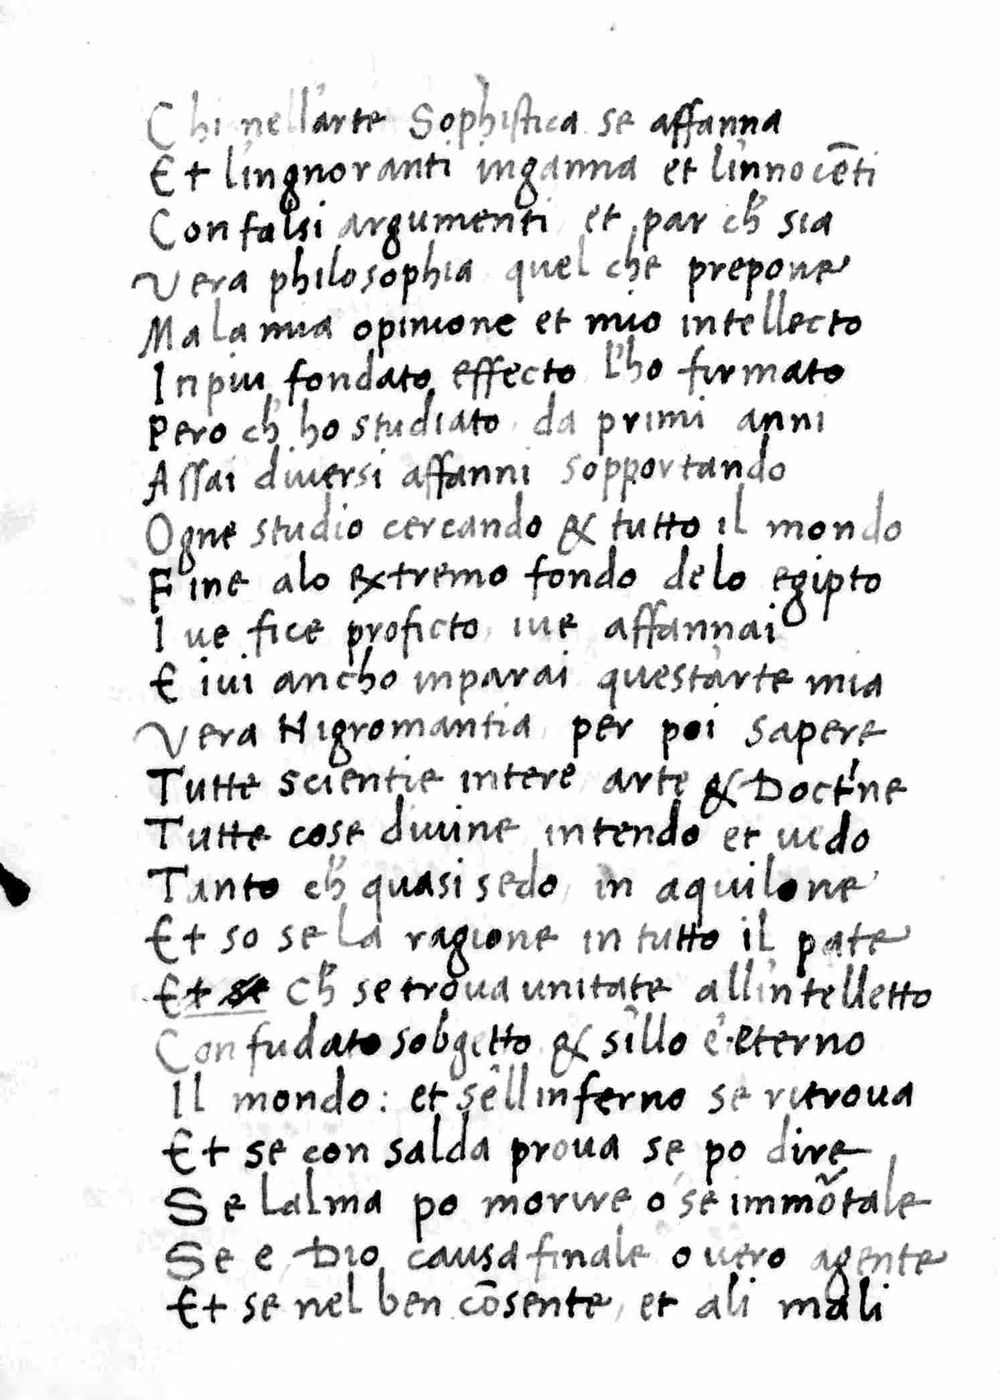 Chi nell'arte Sophistica se affanna
Et l'ingnoranti inganna et l'innocēti
Con falsi argumenti et par ch̄ sia
Vera philosophia quel che prepone
Ma la mia opinione et mio intellecto
In piu fondato effecto l'ho firmato
Pero ch̄ ho studiato da primi anni
Assai diuersi affanni sopportando
Ogne studio cercando & tutto il mondo
Fine alo extremo fondo delo egipto
I ue fice proficto, iue affannai
E iui ancho inparai quest'arte mia
Vera Nigromantia per poi sapere
Tutte scientie intere arte & Doct'ne
Tutte cose diuine intendo et uedo
Tanto ch̄ quasi sedo in aquilone
Et so se la ragione in tutto il pate
Et se Ch̄ se troua unitate all'intelletto
Con fudato sobgetto & s'illo e' eterno
Il mondo: et sell inferno se ritroua
Et se con salda proua se po dire
Se lalma po morire o' se immōrtale
Se e Dio causa finale o uero agente
Et se nel ben cōsente, et ali mali